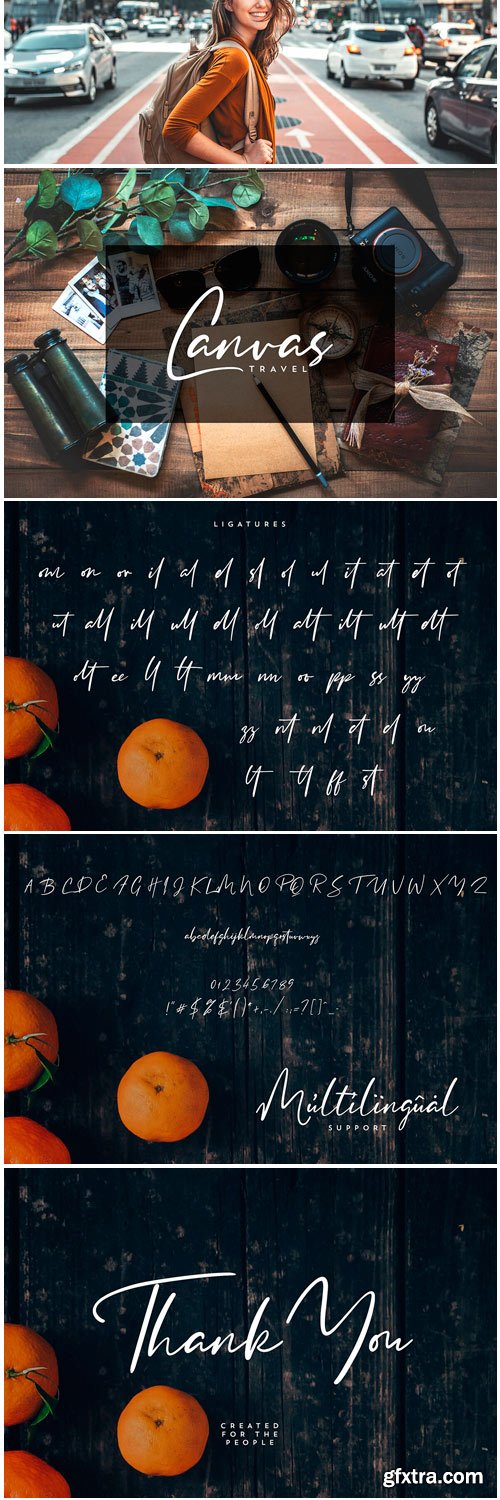 SONY
Canvas
TRAVEL
LIGATURES
om on or il al el sl ol ul it at et ot
ut all ill ull ell oll alt ilt ult elt
olt ee ll tt mm nn oo pp ss yy
zz nt nl ct cl ou
lt tl ff st
ABCDEFGHIJKLMNOPQRSTUVWXYZ
abcdefghijklmnopqrstuvwxyz
0123456789
Múltílïngûàl
SUPPORT
Thank You
CREATED
FOR THE
PEOPLE
gfxtra.com